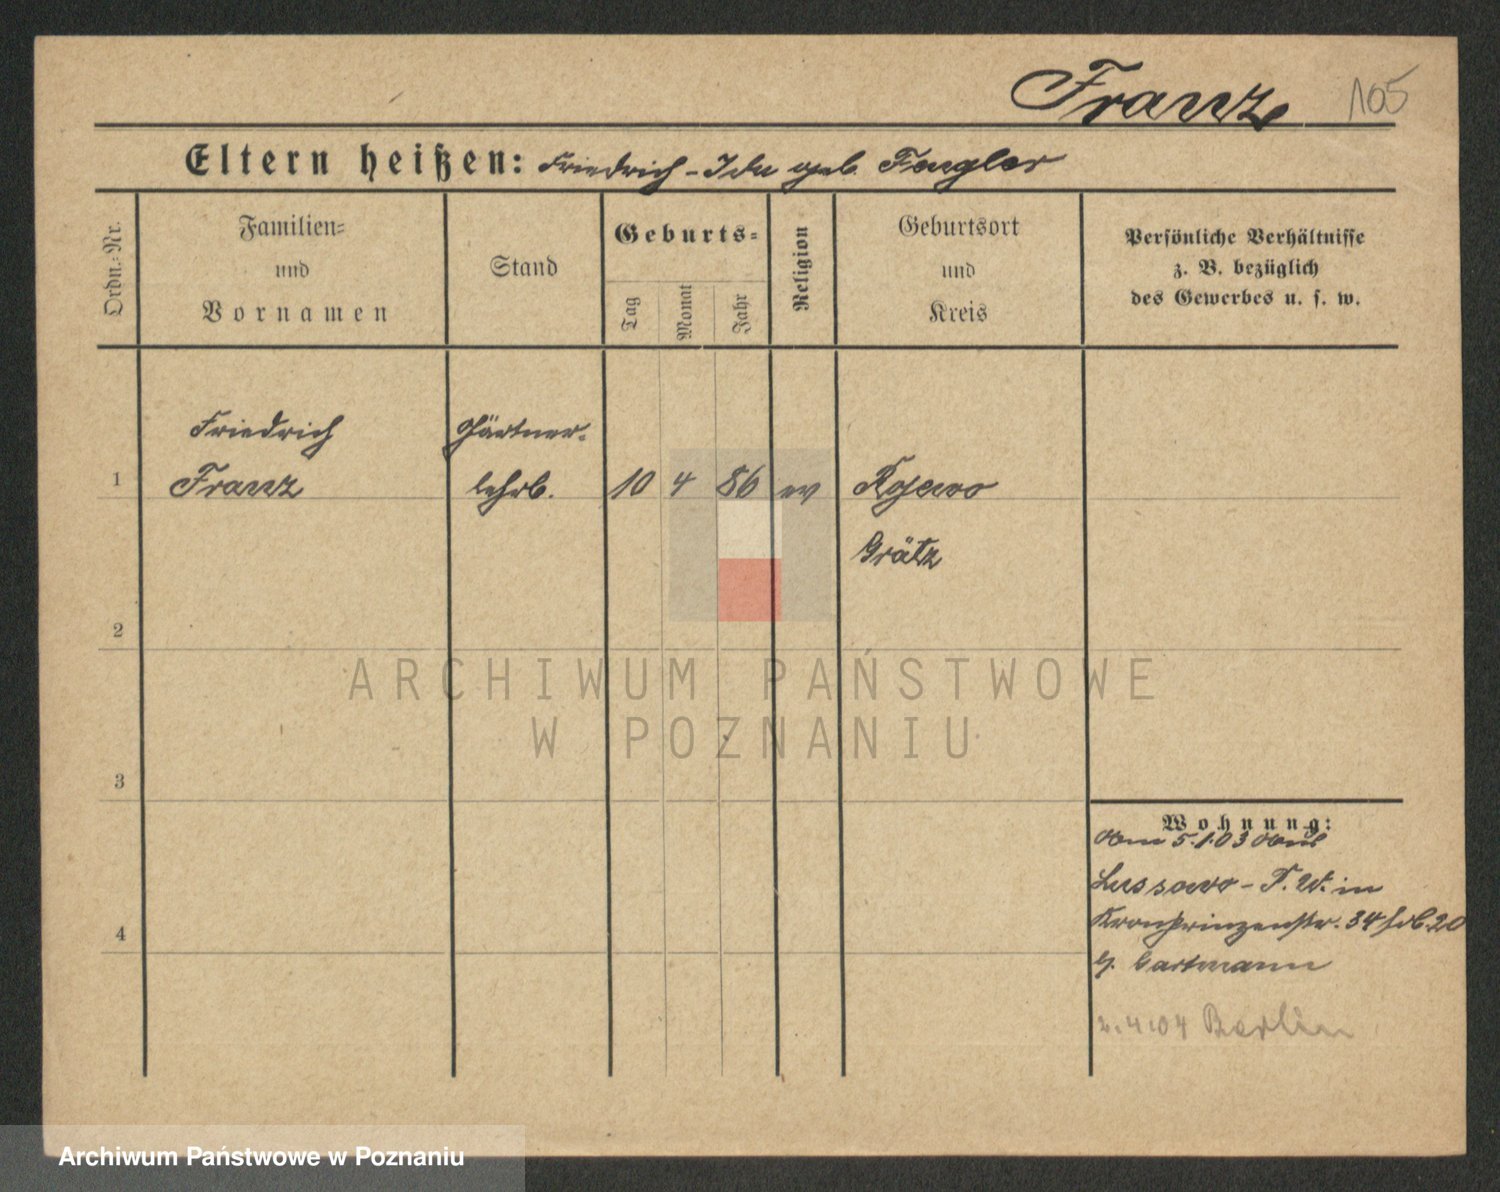 Franz 105
Eltern heißen: Friedrich - Ida geb. Fengler
Ordn.-Nr.
Familien-
und
Vornamen
Stand
Geburts-
Tag
Monat
Jahr
Religion
Geburtsort
und
Kreis
Persönliche Verhältnisse
z. B. bezüglich
des Gewerbes u. s. w.
Friedrich Gärtner-
1 Franz lehrl. 10 4 86 ev Kojewo
Grätz
2
3
4
Wohnung:
Am 5.1.03 aus
Lussowo - T. W. in
Kronprinzenstr. 34
b. Gartmann
2.4.04 Berlin
ARCHIWUM PAŃSTWOWE
W POZNANIU
Archiwum Państwowe w Poznaniu